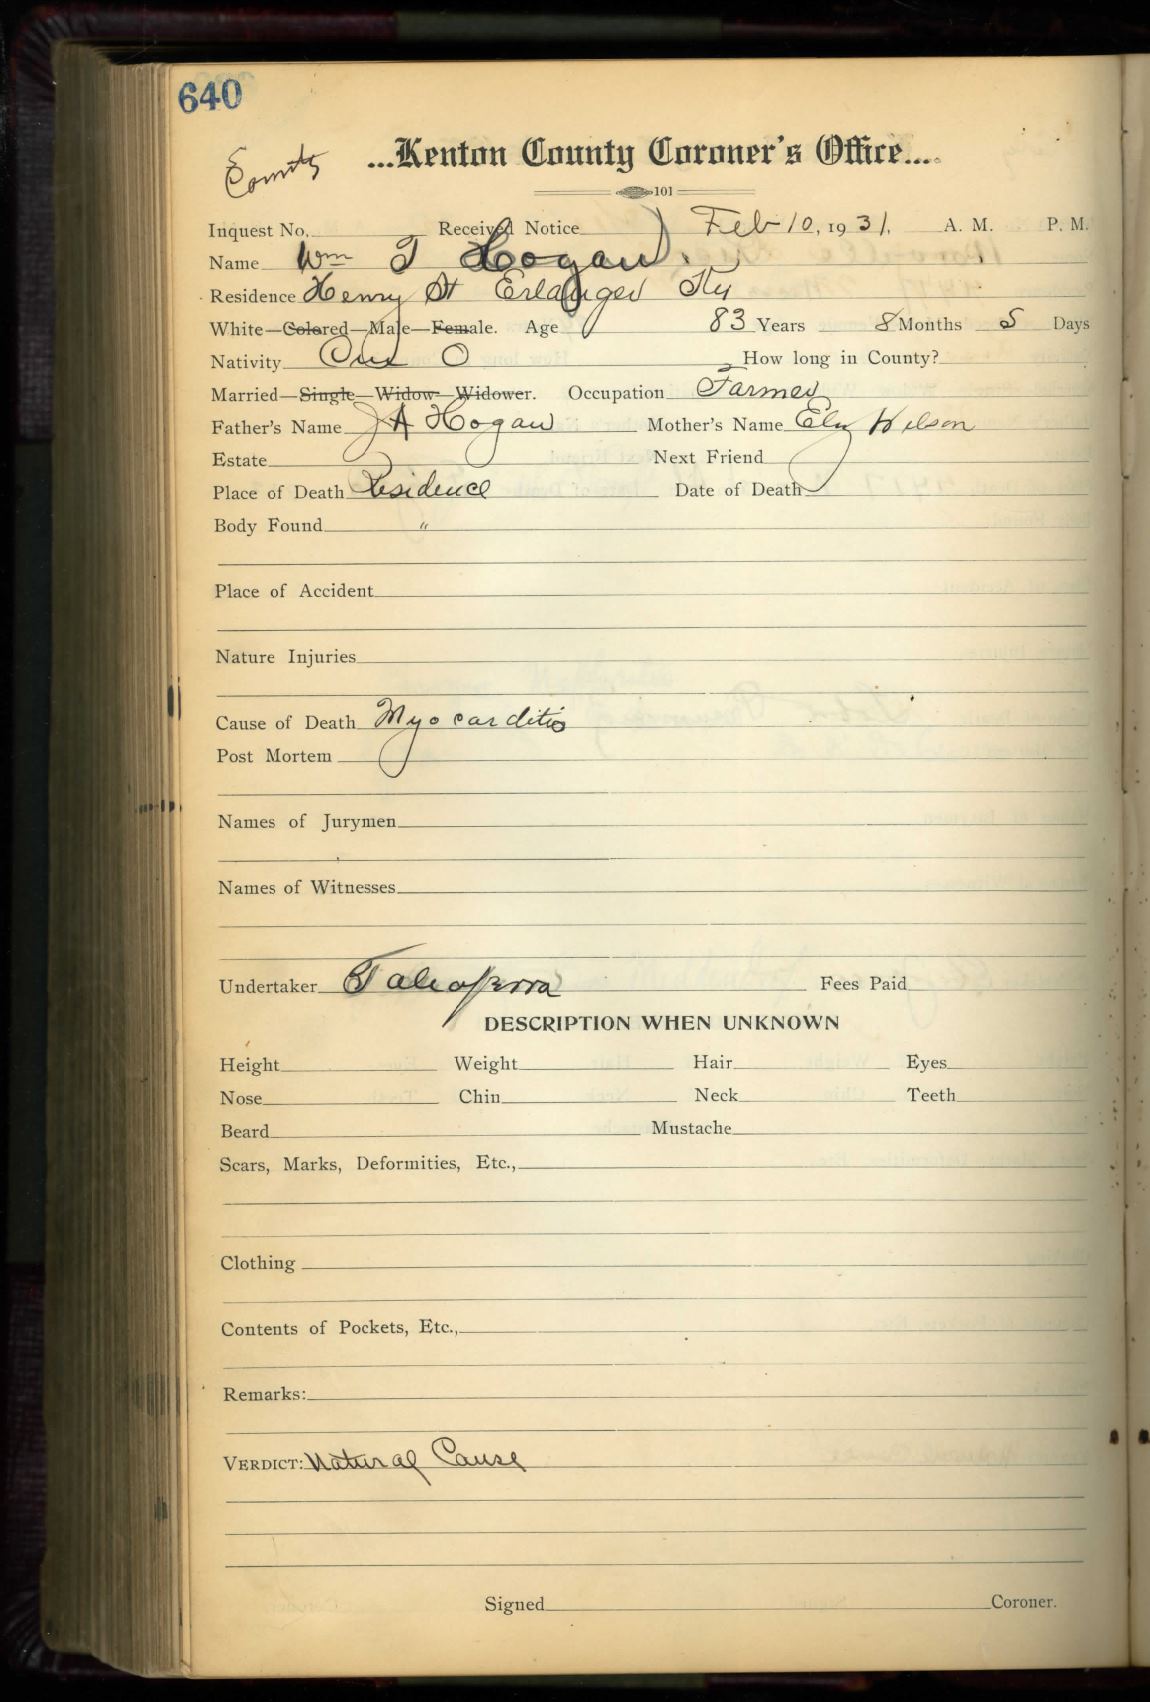 640
County
...Kenton County Coroner's Office...
101
Inquest No. Received Notice Feb 10, 1931, A. M. P. M.
Name Wm T Hogan
Residence Henry St Erlanger Ky
White—Colored—Male—Female. Age 83 Years 8 Months 5 Days
Nativity O How long in County?
Married—Single—Widow—Widower. Occupation Farmer
Father's Name J A Hogan Mother's Name Eliz Wilson
Estate Next Friend
Place of Death Residence Date of Death
Body Found "
Place of Accident
Nature Injuries
Cause of Death Myocarditis
Post Mortem
Names of Jurymen
Names of Witnesses
Undertaker Taliaferro Fees Paid
DESCRIPTION WHEN UNKNOWN
Height Weight Hair Eyes
Nose Chin Neck Teeth
Beard Mustache
Scars, Marks, Deformities, Etc.,
Clothing
Contents of Pockets, Etc.,
Remarks:
VERDICT: Natural Cause
Signed Coroner.